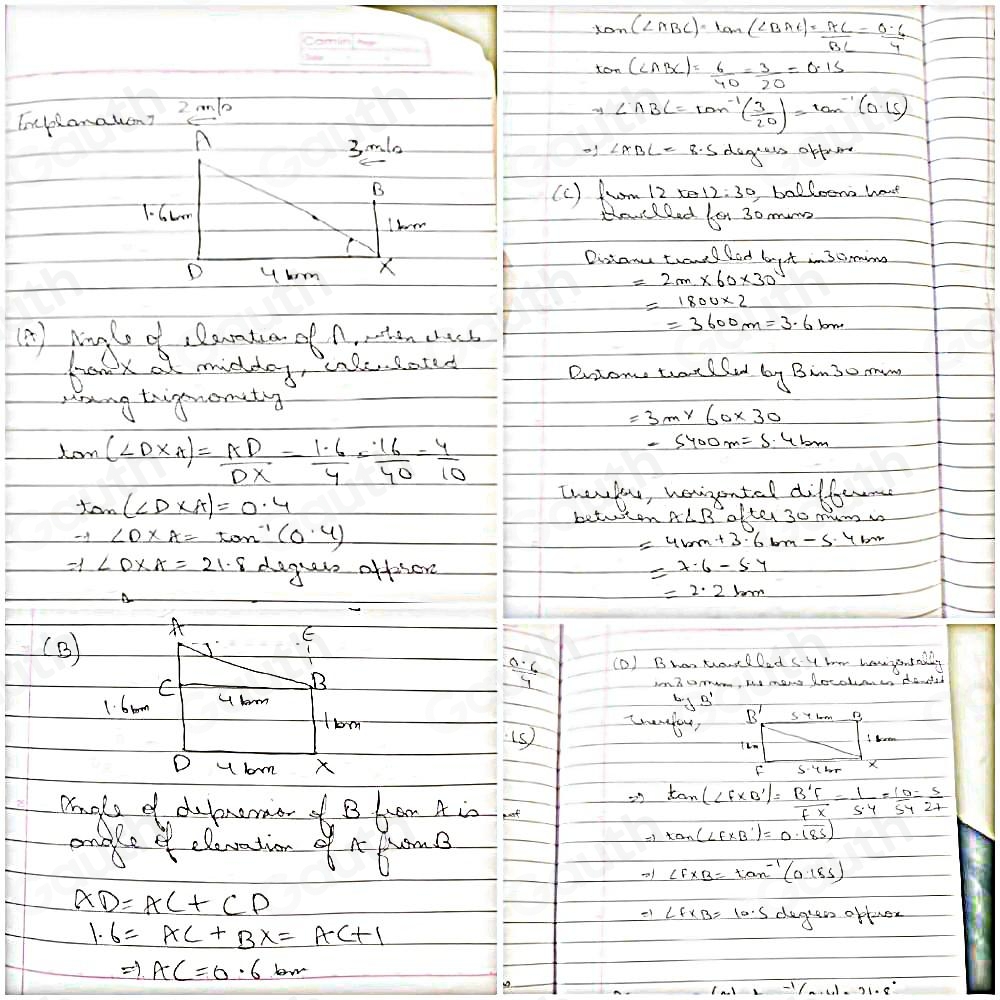 2 m/s
Explanation:
A
3 m/s
B
1.6 km
1 km
D
4 km
X
(A) Angle of elevation of A, when check
from X at midday, calculated
using trigonometry
tan(∠DXA) = AD/DX = 1.6/4 = 16/40 = 4/10
tan(∠DXA) = 0.4
→ ∠DXA = tan⁻¹(0.4)
⇒ ∠DXA = 21.8 degrees approx
(B)
A
E
C
4 km
B
1.6 km
1 km
D
4 km
X
Angle of depression of B from A is
angle of elevation of A from B
AD = AC + CD
1.6 = AC + BX = AC + 1
⇒ AC = 0.6 km
tan(∠ABC) = tan(∠BAC) = AC/BC = 0.6/4
tan(∠ABC) = 6/40 = 3/20 = 0.15
⇒ ∠ABC = tan⁻¹(3/20) = tan⁻¹(0.15)
⇒ ∠ABC = 8.5 degrees approx
(C) from 12 to 12:30, balloons have
travelled for 30 mins
Distance travelled by A in 30 mins
= 2m × 60 × 30
= 1800 × 2
= 3600 m = 3.6 km
Distance travelled by B in 30 mins
= 3m × 60 × 30
= 5400 m = 5.4 km
Therefore, horizontal difference
between A & B after 30 mins is
= 4km + 3.6 km − 5.4 km
= 7.6 − 5.4
= 2.2 km
0.6/4
.15)
(D) B has travelled 5.4 km horizontally
in 30 mins, its new location is denoted
by B'
Therefore,
B'
5.4 km
B
1 km
1 km
F
5.4 km
X
⇒ tan(∠FXB') = B'F/FX = 1/5.4 = 10/54 = 5/27
⇒ tan(∠FXB') = 0.185)
⇒ ∠FXB = tan⁻¹(0.185)
⇒ ∠FXB = 10.5 degrees approx